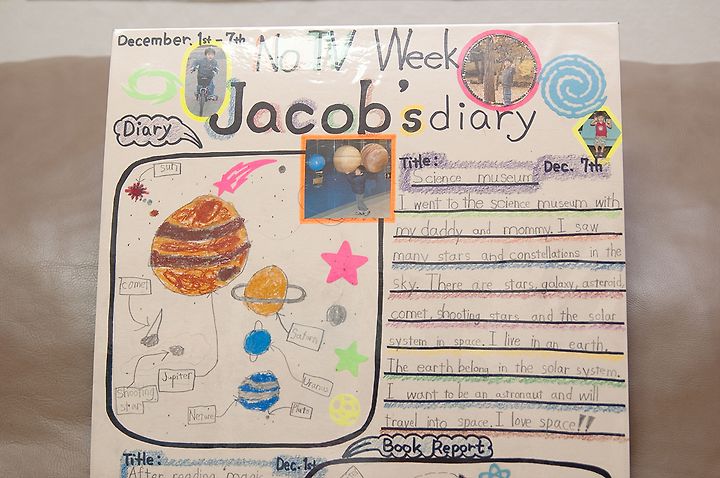 December. 1st - 7th
No TV Week
Jacob's diary
Diary
sun
comet
Shooting star
Jupiter
Saturn
Uranus
Neture
Pluto
Title:
Science museum
Dec. 7th
I went to the science museum with
my daddy and mommy. I saw
many stars and constellations in the
sky. There are stars, galaxy, asteroid,
comet, shooting stars and the solar
system in space. I live in an earth.
The earth belong in the solar system.
I want to be an astronaut and will
travel into space. I love space!!
Book Report
Title:
Dec. 1st
After reading magic